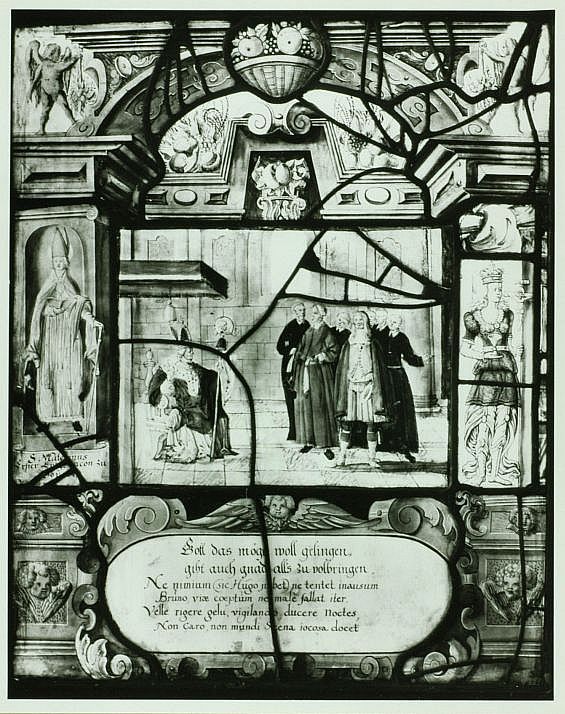 S. Mal
Gott das mögt woll gelingen
gibt auch gnad alls zu volbringen.
Ne nimium (sic Hugo jubet) ne tentet inausum
Bruno viæ cœptum ne male fallat iter.
Velle rigere gelu, vigilando ducere Noctes,
Non Caro, non mundi Scena iocosa docet